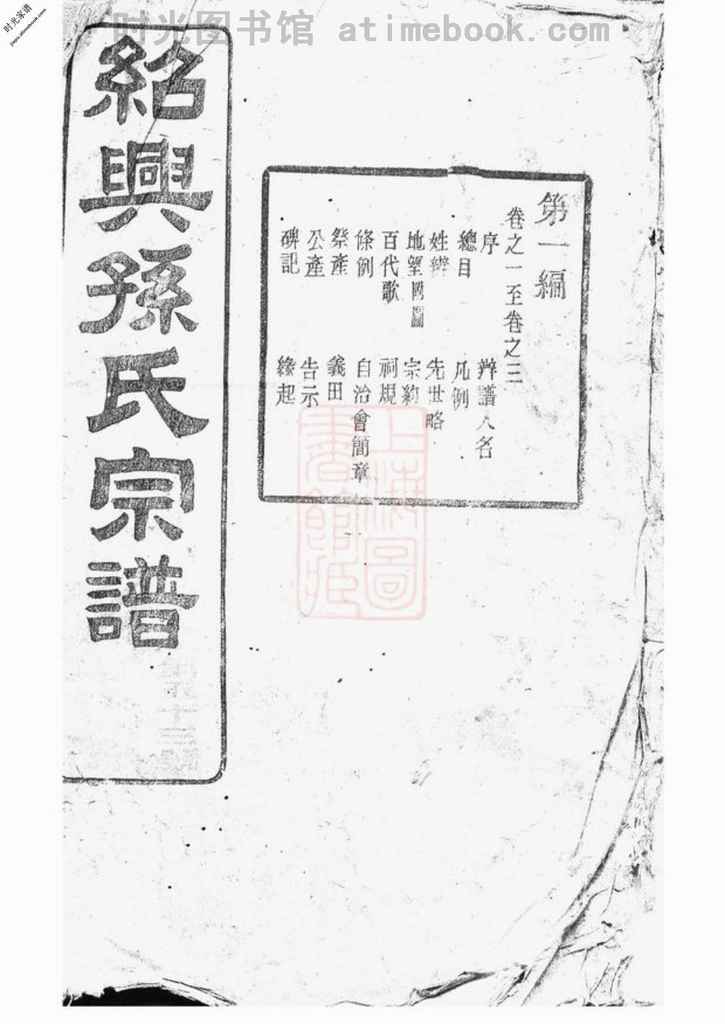 时光图书馆 atimebook.com
时光家谱
紹興孫氏宗譜
第一編
卷之一至卷之三
序 辦譜人名
總目 凡例
姓辨 先世略
地望圖 宗約
百代歌 祠規
條例 自治會簡章
祭產 義田
公產 告示
碑記 緣起